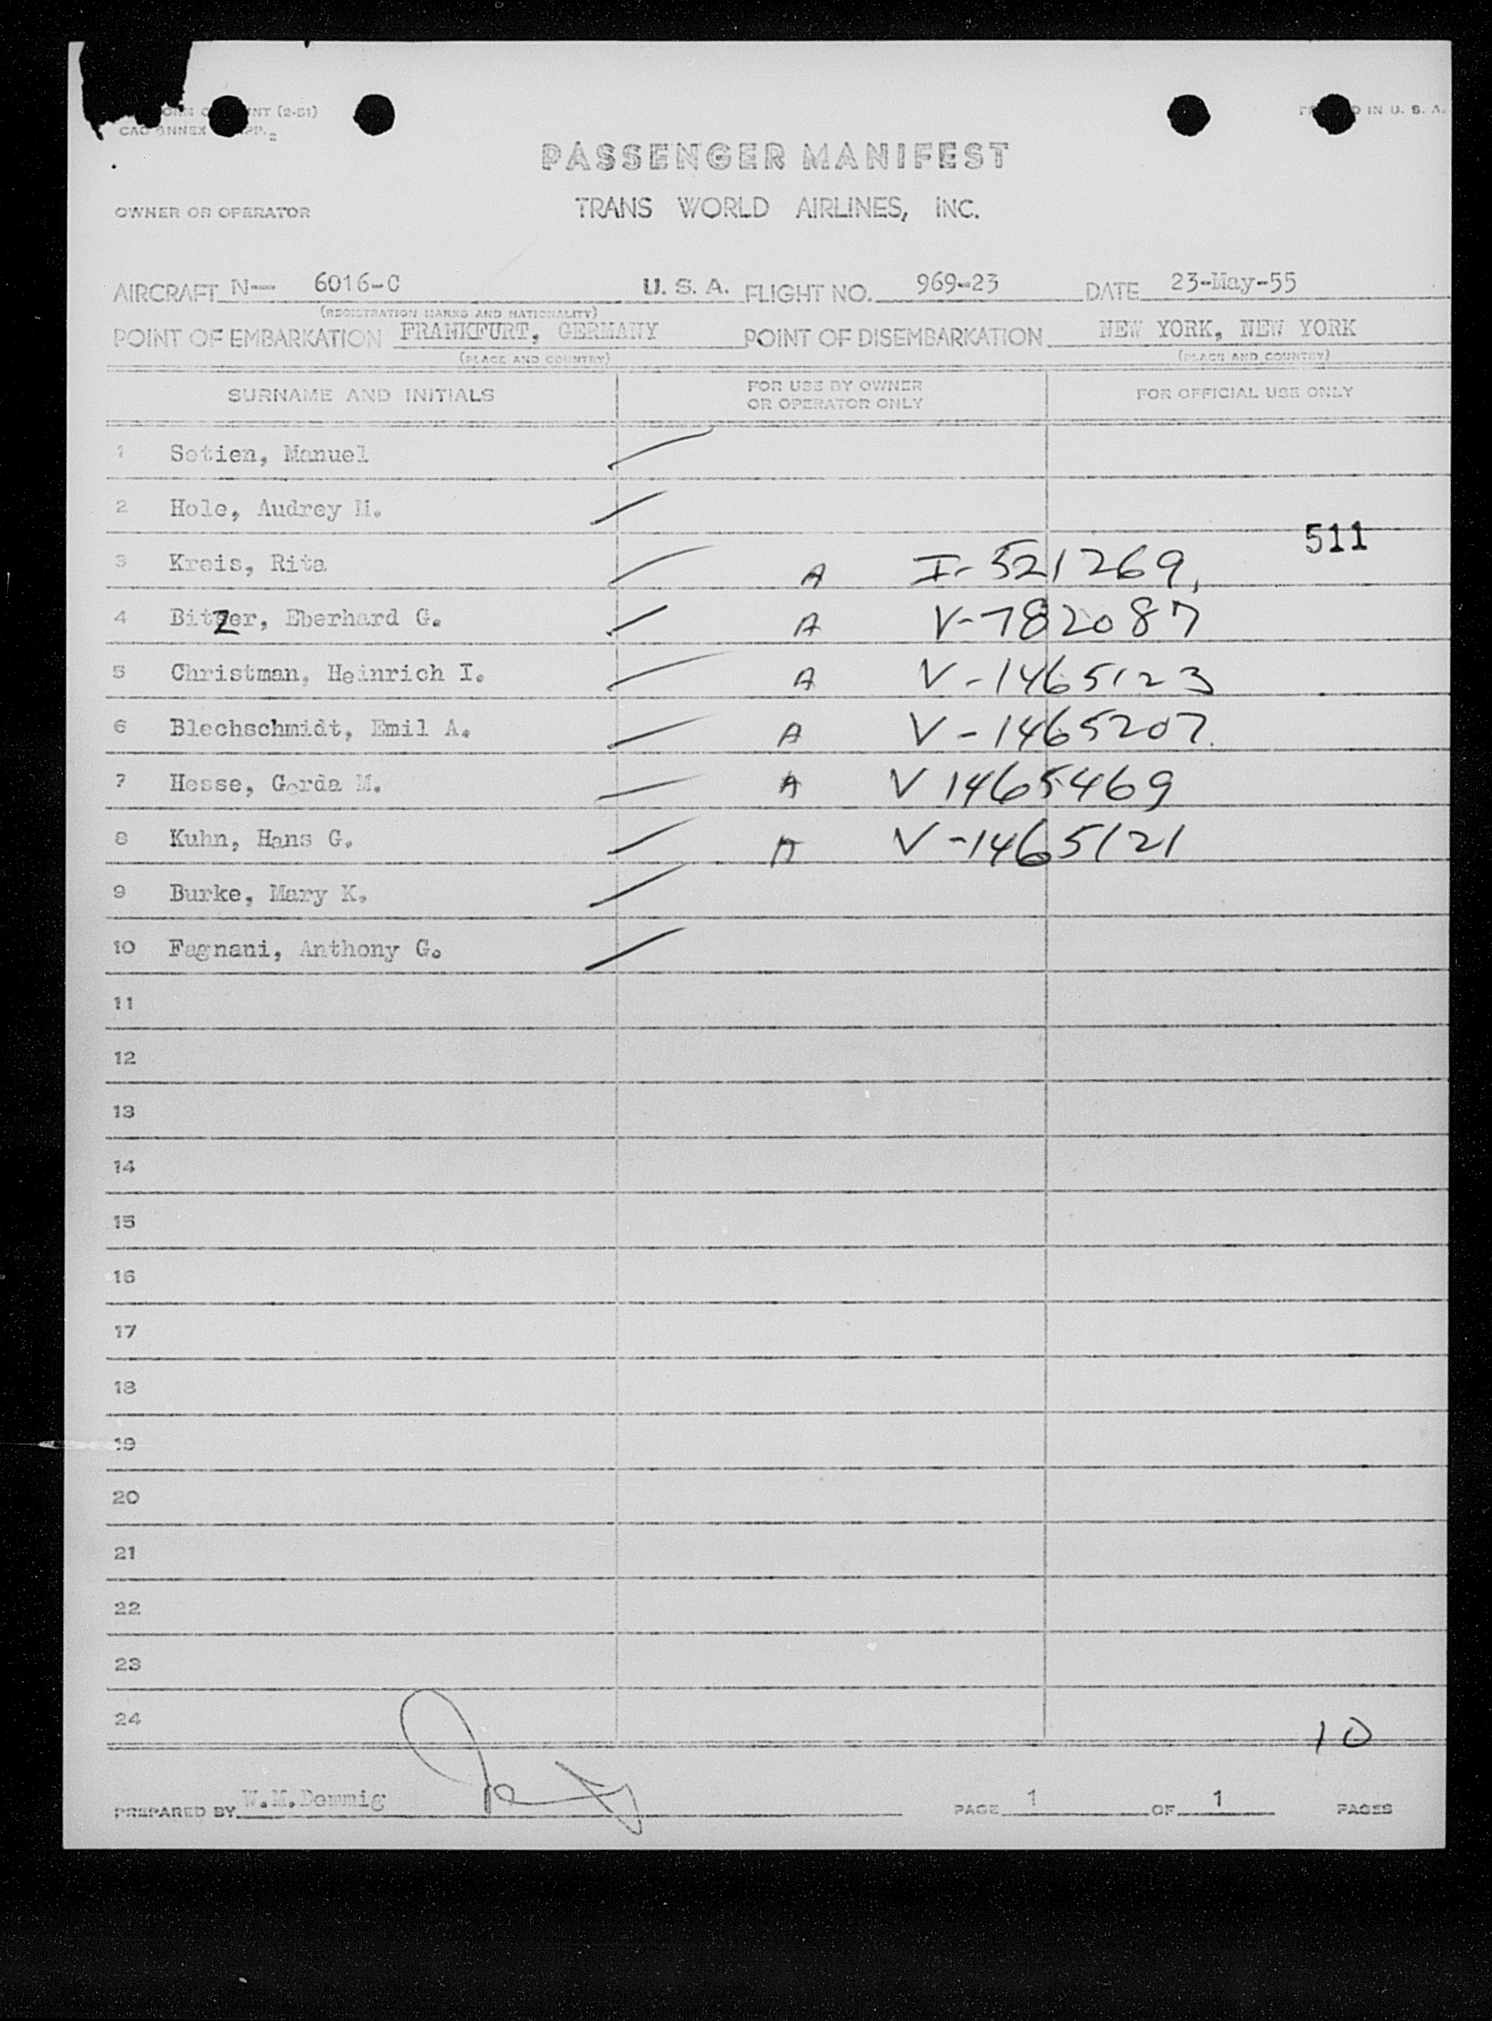 PASSENGER MANIFEST
OWNER OR OPERATOR TRANS WORLD AIRLINES, INC.
AIRCRAFT N-- 6016-C U. S. A. FLIGHT NO. 969-23 DATE 23-May-55
(REGISTRATION MARKS AND NATIONALITY)
POINT OF EMBARKATION FRANKFURT, GERMANY POINT OF DISEMBARKATION NEW YORK, NEW YORK
(PLACE AND COUNTRY) (PLACE AND COUNTRY)
SURNAME AND INITIALS FOR USE BY OWNER OR OPERATOR ONLY FOR OFFICIAL USE ONLY
1 Setien, Manuel
2 Hole, Audrey M.
511
3 Kreis, Rita A I-521269,
4 Bitzer, Eberhard G. A V-782087
5 Christman, Heinrich I. A V-1465123
6 Blechschmidt, Emil A. A V-1465207
7 Hesse, Gerda M. A V 1465469
8 Kuhn, Hans G. A V-1465121
9 Burke, Mary K.
10 Fagnani, Anthony G.
11
12
13
14
15
16
17
18
19
20
21
22
23
24
10
PREPARED BY W.M.Dommig PAGE 1 OF 1 PAGES